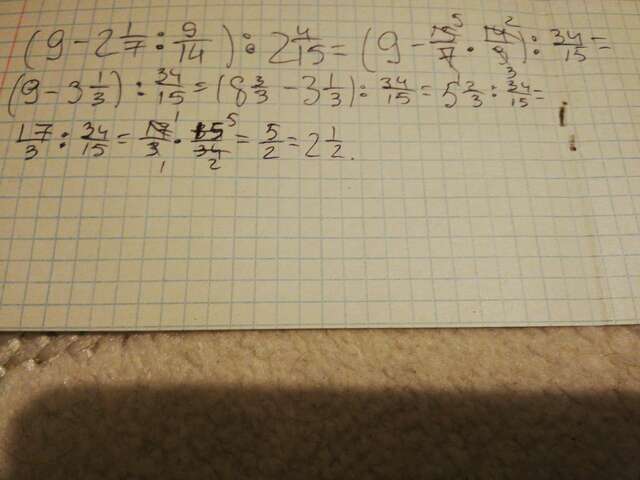 (9 - 2 1/7 : 9/14) : 2 4/15 = (9 - 15/7 5 · 14/9 2 3) : 34/15 =
(9 - 3 1/3) : 34/15 = (8 3/3 - 3 1/3) : 34/15 = 5 2/3 : 34/15 =
17/3 : 34/15 = 17/3 1 1 · 15/34 5 2 = 5/2 = 2 1/2.